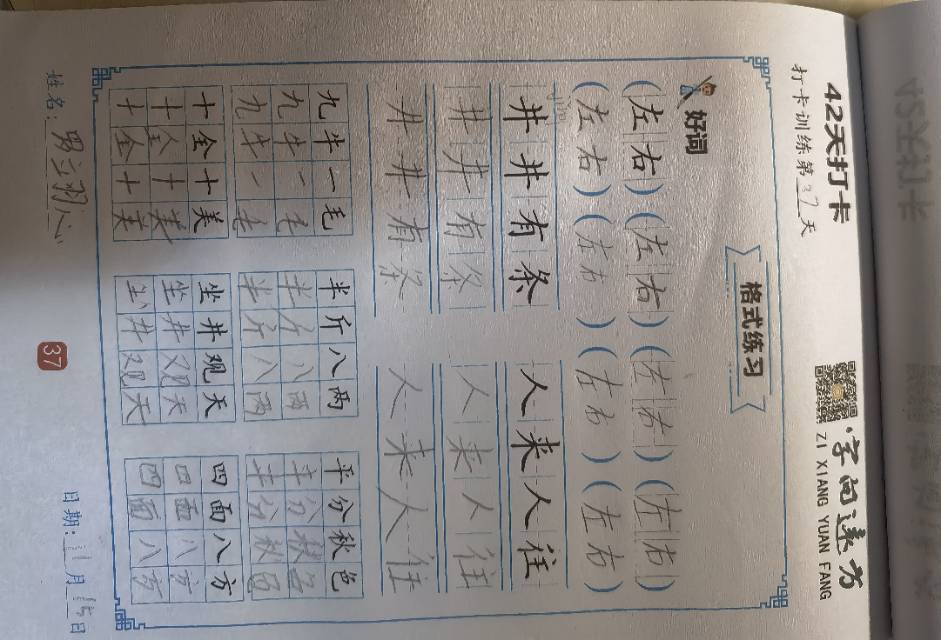 42天打卡
字向远方
ZI XIANG YUAN FANG
打卡训练第37天
格式练习
(左右) (左右) (左右) (左右)
(左右) (左右) (左右) (左右)
好词
井井有条 人来人往
井井有条 人来人往
井井有条 人来人往
九牛一毛 半斤八两 平分秋色
九牛一毛 半斤八两 平分秋色
九牛一毛 半斤八两 平分秋色
十全十美 坐井观天 四面八方
十全十美 坐井观天 四面八方
十全十美 坐井观天 四面八方
姓名: 日期: 月15日
37